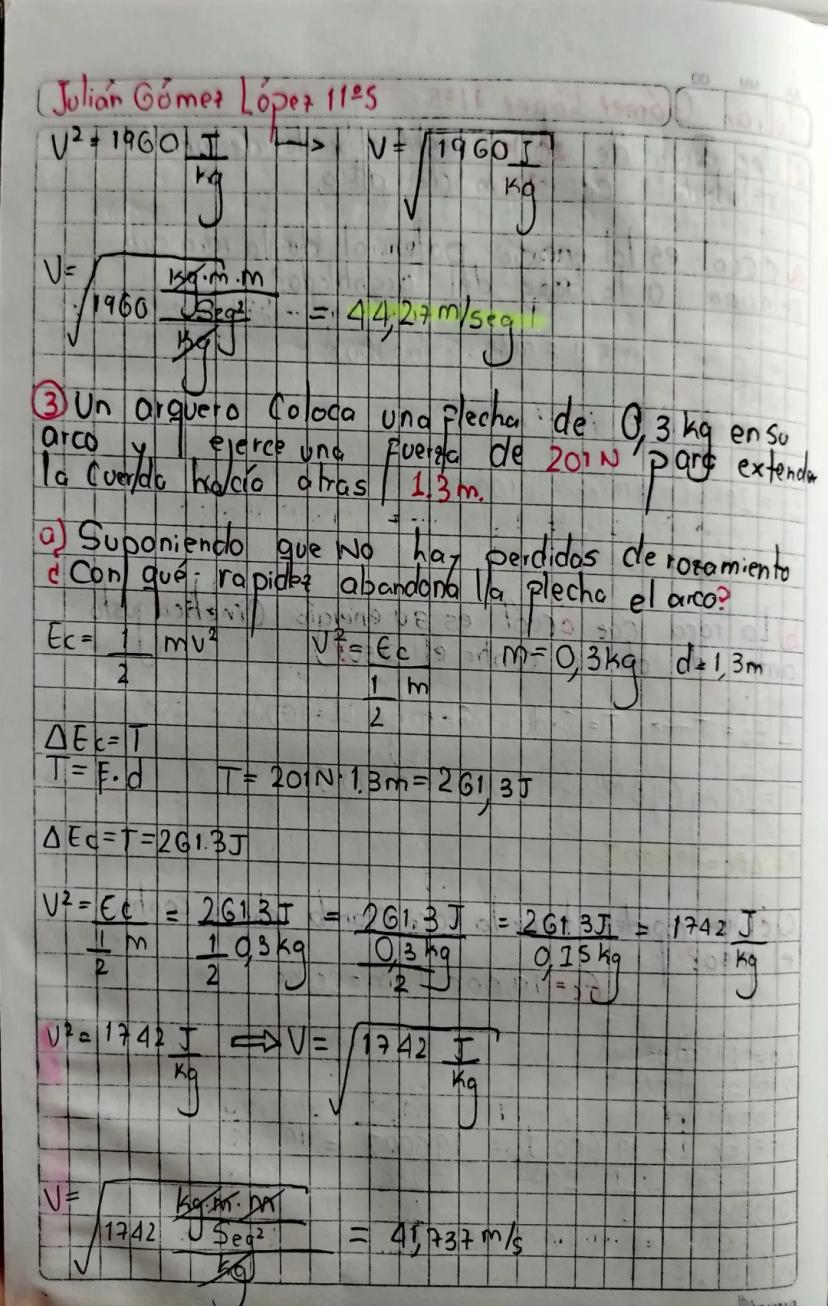 Julián Gómez López 11°5
V² = 1960 J/kg |—> V = √1960 J/kg
V = √1960 kg·m·m/Seg²/kg = 44,27 m/seg
③ Un arquero Coloca una flecha de 0,3 kg en su
arco y ejerce una fuerza de 201N para extender
la Cuerda hacía atras 1.3 m.
a) Suponiendo que No hay perdidas de rozamiento
¿Con qué rapidez abandona la flecha el arco?
Ec = 1/2 mv² V² = Ec / 1/2 m m = 0,3 kg d = 1,3 m
ΔEc = T
T = F·d T = 201N·1.3m = 261,3J
ΔEc = T = 261.3J
V² = Ec / 1/2 m = 261.3J / 1/2 0,3kg = 261.3J / 0,3kg/2 = 261.3J / 0,15kg = 1742 J/kg
V² = 1742 J/kg ⟹ V = √1742 J/kg
V = √1742 kg·m·m/Seg²/kg = 41,737 m/s